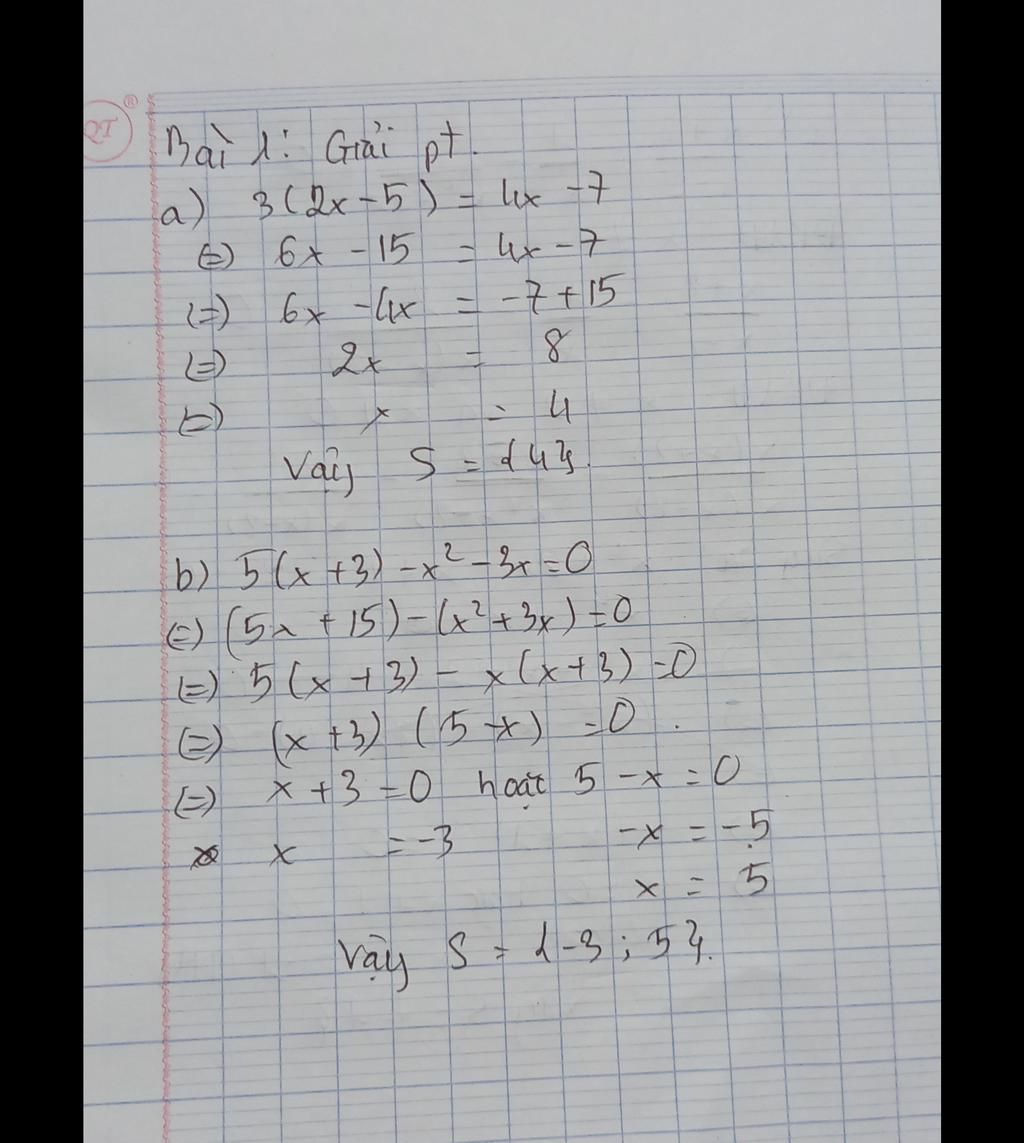 Bài 1: Giải pt.
a) 3(2x-5) = 4x -7
(=) 6x - 15 = 4x - 7
(=) 6x - 4x = -7 + 15
(=) 2x = 8
(=) x = 4
Vậy S = {4}.
b) 5(x+3) - x² - 3x = 0
(=) (5x + 15) - (x² + 3x) = 0
(=) 5(x + 3) - x(x+3) = 0
(=) (x+3) (5-x) = 0.
(=) x + 3 = 0 hoặc 5 - x = 0
x = -3 -x = -5
x = 5
Vậy S = {-3; 5}.